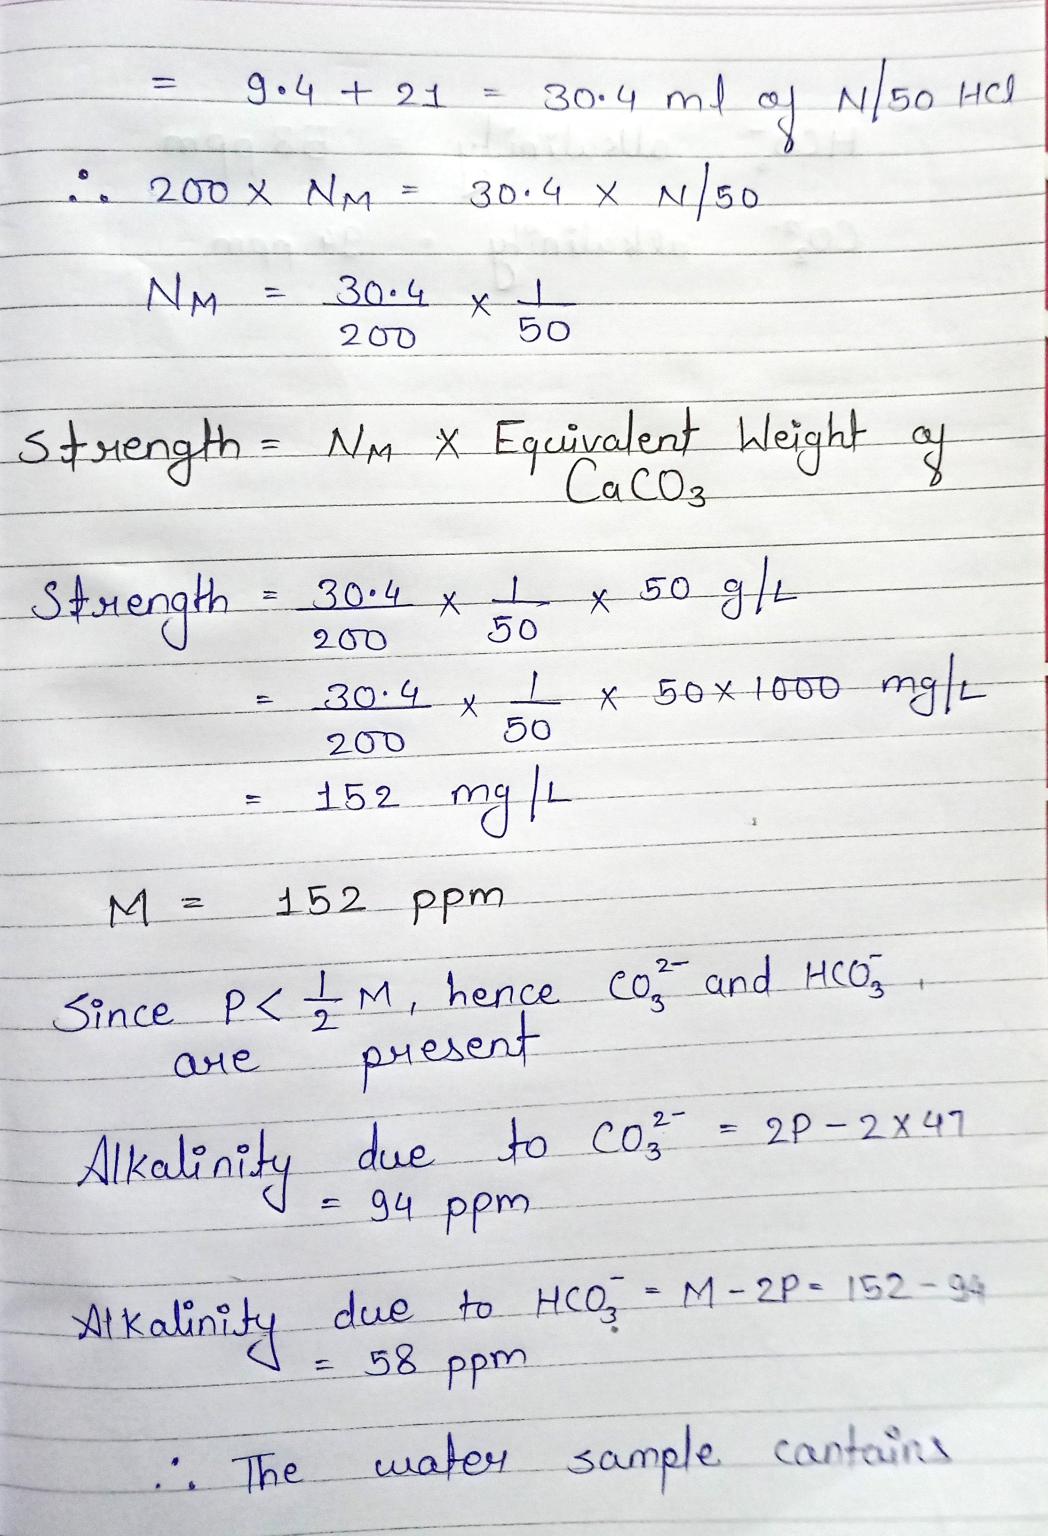 = 9.4 + 21 = 30.4 ml of N/50 HCl
∴ 200 × N_M = 30.4 × N/50
N_M = 30.4/200 × 1/50
Strength = N_M × Equivalent Weight of
CaCO₃
Strength = 30.4/200 × 1/50 × 50 g/L
= 30.4/200 × 1/50 × 50×1000 mg/L
= 152 mg/L
M = 152 ppm
Since P < 1/2 M, hence CO₃²⁻ and HCO₃⁻,
are present
Alkalinity due to CO₃²⁻ = 2P - 2×47
= 94 ppm
Alkalinity due to HCO₃⁻ = M - 2P = 152 - 94
= 58 ppm
∴ The water sample cantains